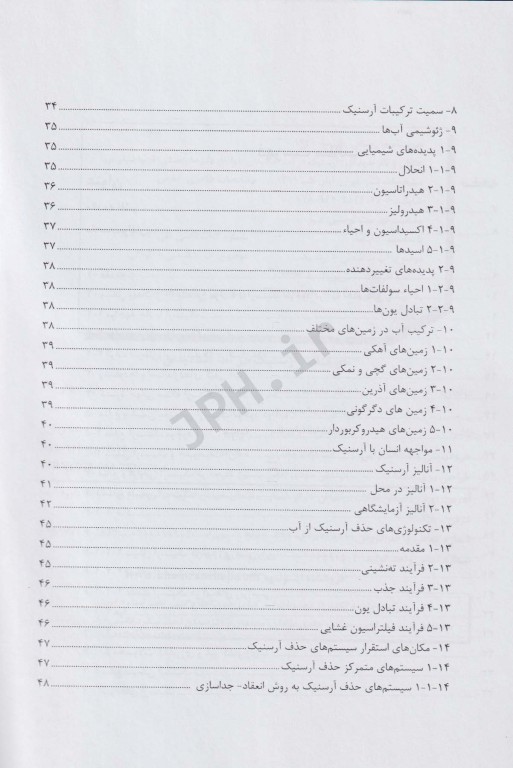 ۸- سمیت ترکیبات آرسنیک ........ ۳۴
۹- ژئوشیمی آب‌ها ........ ۳۵
۹-۱ پدیده‌های شیمیایی ........ ۳۵
۹-۱-۱ انحلال ........ ۳۵
۹-۱-۲ هیدراتاسیون ........ ۳۶
۹-۱-۳ هیدرولیز ........ ۳۶
۹-۱-۴ اکسیداسیون و احیاء ........ ۳۷
۹-۱-۵ اسیدها ........ ۳۷
۹-۲ پدیده‌های تغییردهنده ........ ۳۸
۹-۲-۱ احیاء سولفات‌ها ........ ۳۸
۹-۲-۲ تبادل یون‌ها ........ ۳۸
۱۰- ترکیب آب در زمین‌های مختلف ........ ۳۸
۱۰-۱ زمین‌های آهکی ........ ۳۹
۱۰-۲ زمین‌های گچی و نمکی ........ ۳۹
۱۰-۳ زمین‌های آذرین ........ ۳۹
۱۰-۴ زمین های دگرگونی ........ ۳۹
۱۰-۵ زمین‌های هیدروکربوردار ........ ۴۰
۱۱- مواجهه انسان با آرسنیک ........ ۴۰
۱۲- آنالیز آرسنیک ........ ۴۰
۱۲-۱ آنالیز در محل ........ ۴۱
۱۲-۲ آنالیز آزمایشگاهی ........ ۴۲
۱۳- تکنولوژی‌های حذف آرسنیک از آب ........ ۴۵
۱۳-۱ مقدمه ........ ۴۵
۱۳-۲ فرآیند ته‌نشینی ........ ۴۵
۱۳-۳ فرآیند جذب ........ ۴۶
۱۳-۴ فرآیند تبادل یون ........ ۴۶
۱۳-۵ فرآیند فیلتراسیون غشایی ........ ۴۶
۱۴- مکان‌های استقرار سیستم‌های حذف آرسنیک ........ ۴۷
۱۴-۱ سیستم‌های متمرکز حذف آرسنیک ........ ۴۷
۱۴-۱-۱ سیستم‌های حذف آرسنیک به روش انعقاد- جداسازی ........ ۴۸
JPH.ir